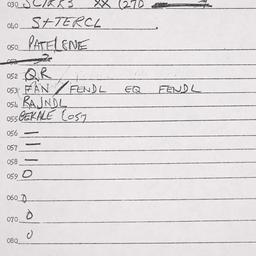 030 SCIRRS XX (270
040 S+TERCL
050 PATELENE
052 QR
053 FAN / FENDL EQ FENDL
054 RAJNDL
055 BEKALE (057
056 —
057 —
058 —
059 0
060 0
070 0
080 0